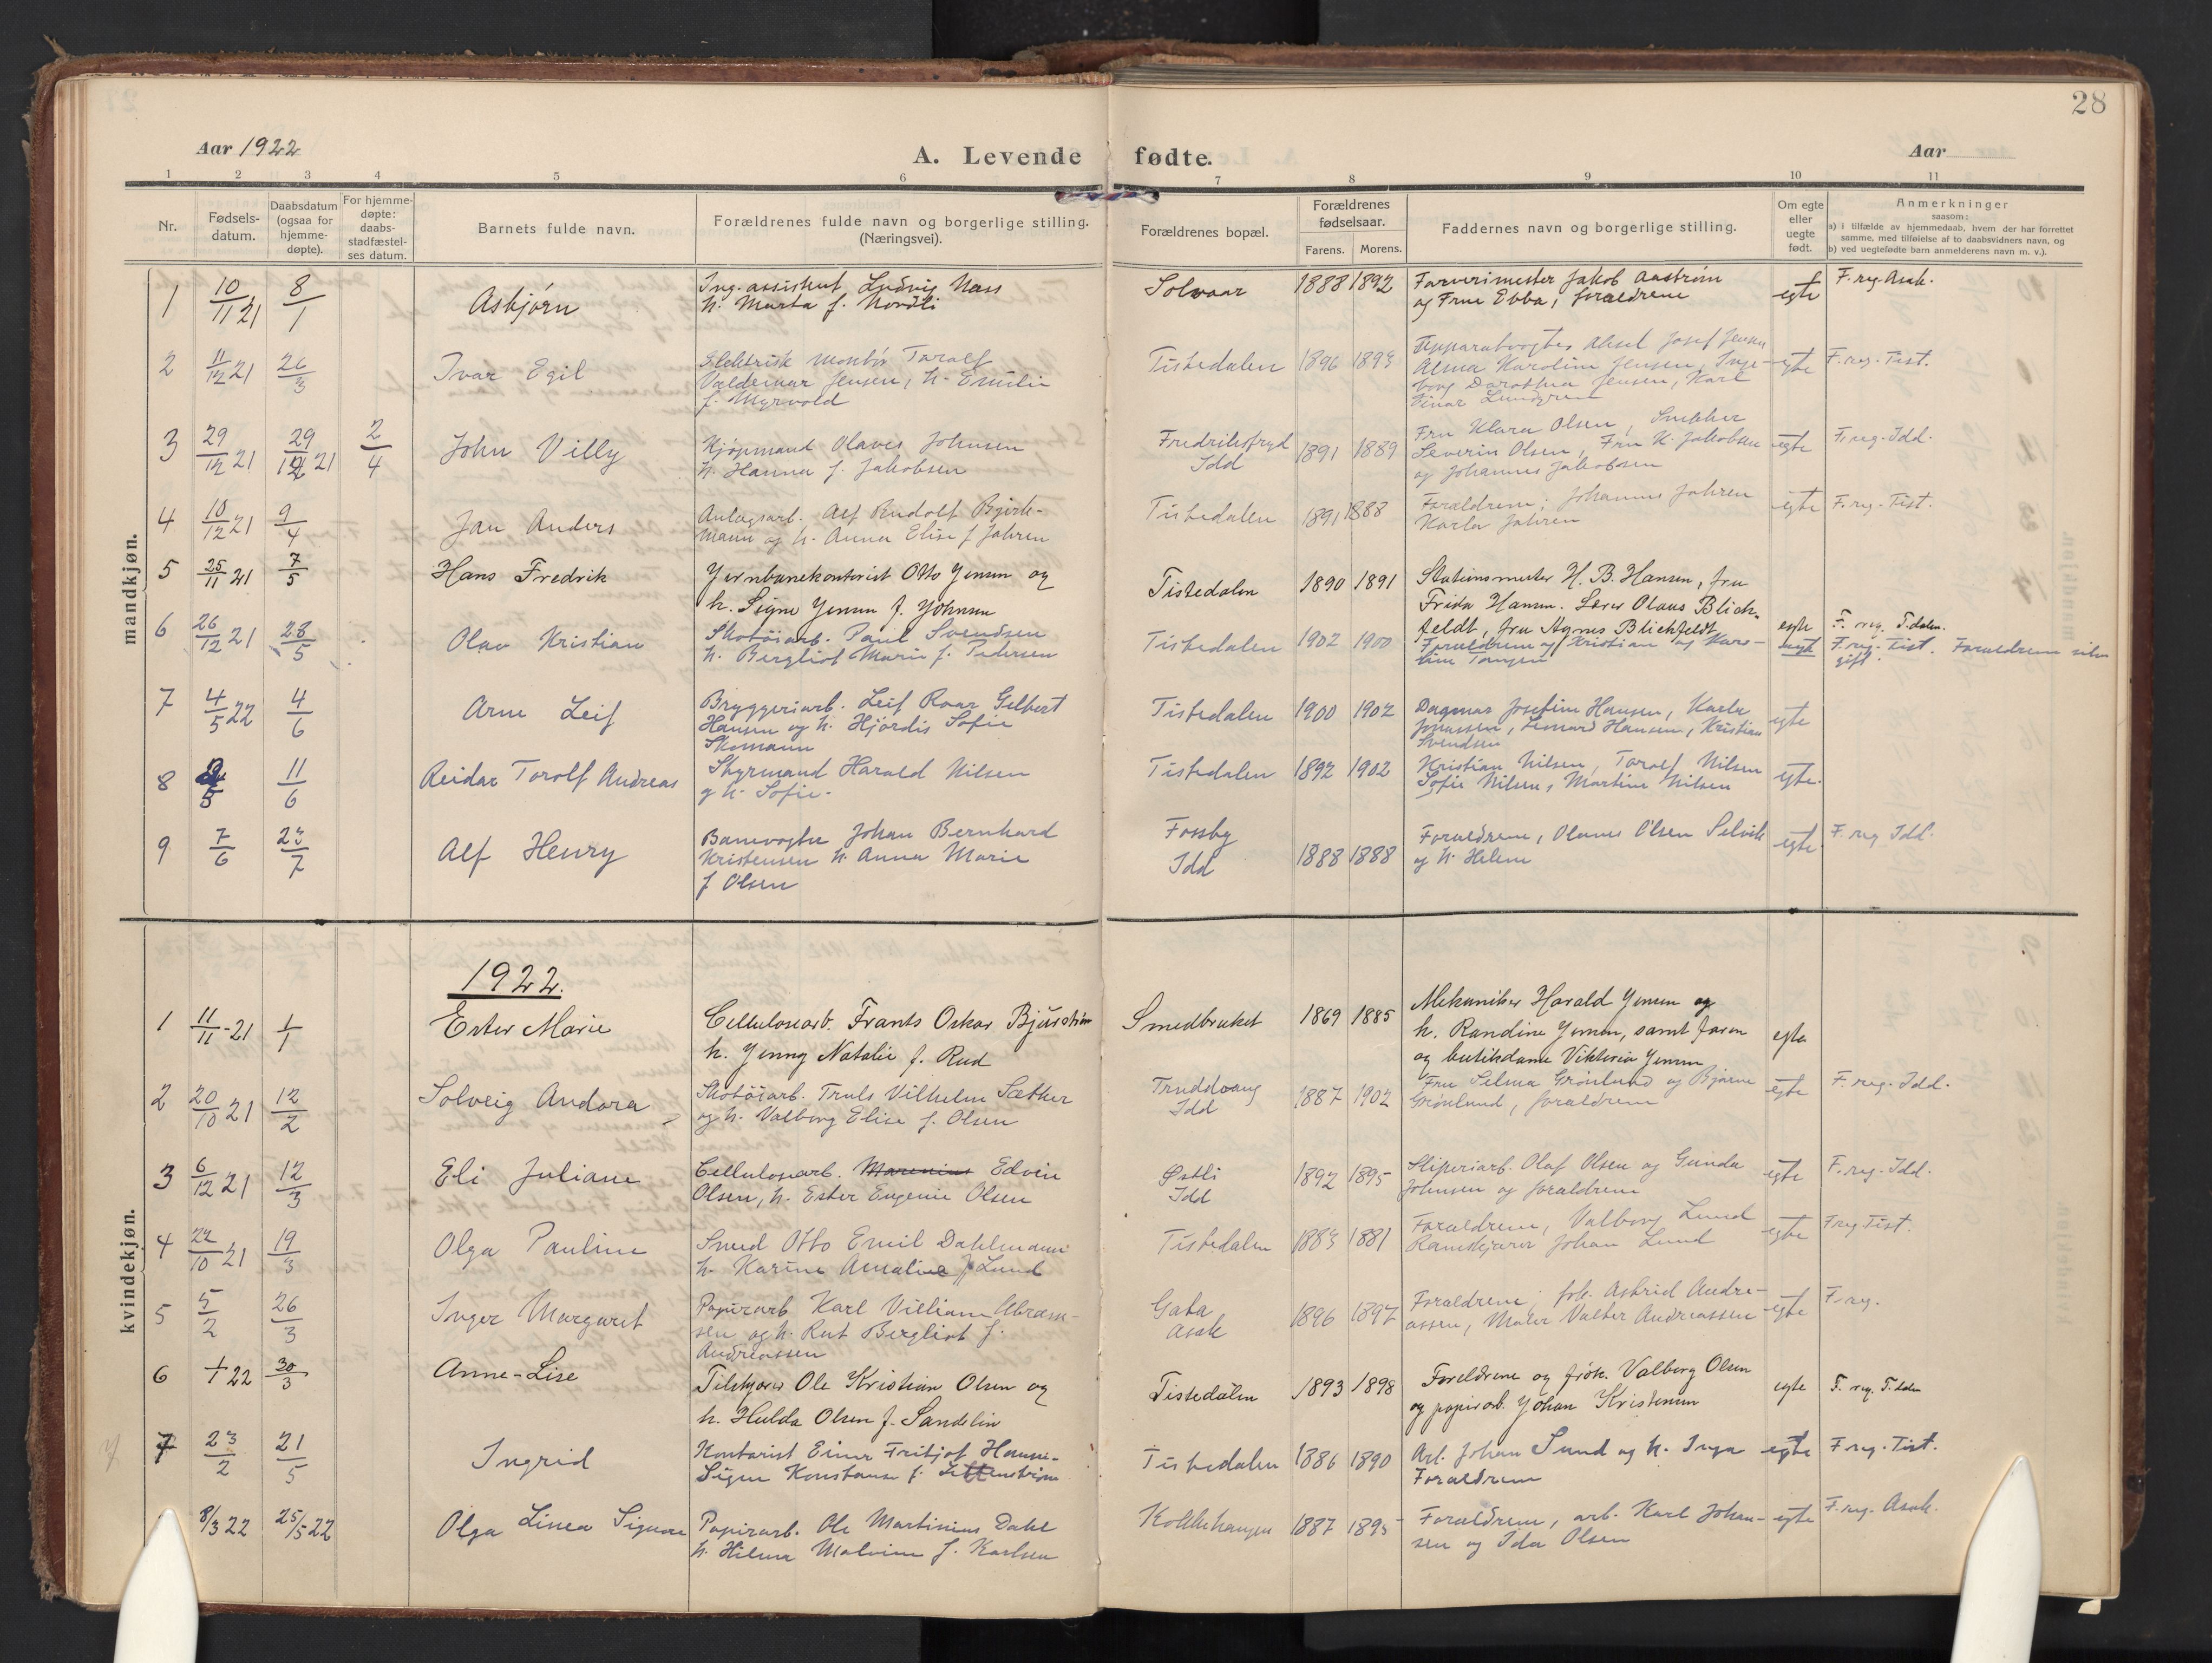 28
Aar 1922
A. Levende fødte.
Aar
1 2 3 4 5 6 7 8 9 10 11
Nr.
Fødsels-
datum.
Daabsdatum
(ogsaa for
hjemme-
døpte).
For hjemme-
døpte:
daabs-
stadfæstel-
ses datum.
Barnets fulde navn.
Forældrenes fulde navn og borgerlige stilling.
(Næringsvei).
Forældrenes bopæl.
Forældrenes
fødselsaar.
Farens. Morens.
Faddernes navn og borgerlige stilling.
Om egte
eller
uegte
født.
Anmerkninger
saasom:
a) i tilfælde av hjemmedaab, hvem der har forrettet
samme, med tilføielse af to daabsvidners navn, og
b) ved uegtefødte barn anmelderens navn m. v.).
mandkjøn.
1 10/11 21 8/1 Asbjørn
Ing. assistent Ludvig Næss
h. Marta f. Nordli
Solvaar 1888 1892
Farverimester Jakob Aastrøm
og Frue Ebba, forældrene
egte F. reg. Asak.
2 11/12 21 26/3 Ivar Egil
Elektrisk montør Toralf
Valdemar Jensen, h. Emilie
f. Myrvold
Tistedalen 1896 1893
Aksel Josef Jensen
Alma Karoline Jensen, Inge-
borg Dorothea Jensen, Karl
Einar Lundgren
egte F. reg. Tist.
3 29/12 21 29/12 21 2/4 John Villy
Kjøpmand Olaves Johnsen
h. Hanna f. Jakobsen
Fredriksfryd
Idd
1891 1889
Fru Klara Olsen, Snekker
Severin Olsen, Fru K. Jakobsen
og Johannes Jakobsen
egte F. reg. Idd.
4 10/12 21 9/4 Jan Anders
Anlægsarb. Alf Rudolf Bjørk-
mann og h. Anna Elise f Jahren
Tistedalen 1891 1888
Forældrene, Johannes Jahren
Karla Jahren
egte F. reg. Tist.
5 25/11 21 7/5 Hans Fredrik
Jernbanekontorist Otto Jensen og
h. Signe Jensen f. Johnsen
Tistedalen 1890 1891
Stationsmester H. B. Hansen, fru
Frida Hansen. Lærer Olaus Blich-
feldt, fru Agnes Blichfeldt
egte F. reg. T.dalen.
6 26/12 21 28/5 Olav Kristian
Skotøiarb. Paul Svendsen
h. Bergliot Marie f. Pedersen
Tistedalen 1902 1900
Forældrene og Kristian og Karo-
line Tangen
F. reg. Tist. Forældrene
gift.
7 4/5 22 4/6 Arne Leif
Bryggeriarb. Leif Roar Gelbert
Hansen og h. Hjørdis Sofie
Skomann
Tistedalen 1900 1902
Dagmar Josefine Hansen, Karla
Jonassen, Lenard Hansen, Kristian
Svendsen
egte
8 /5 11/6 Reidar Torolf Andreas
Styrmand Harald Nilsen
og h. Sofie.
Tistedalen 1892 1902
Kristian Nilsen, Toralf Nilsen
Sofie Nilsen, Martine Nilsen
egte.
9 7/6 23/7 Alf Henry
Banevogter Johan Bernhard
Kristensen h. Anna Marie
f Olsen
Fossby
Idd
1888 1888
Forældrene, Olaves Olsen Selvik
og h. Helene
egte F. reg Idd.
kvindekjøn.
1922.
1 11/11-21 1/1 Ester Marie
Cellulosearb. Frants Oskar Bjurstrøm
h. Jenny Natalie f. Rud
Smedbruket 1869 1885
Mekaniker Harald Jensen og
h. Randine Jensen, samt faren
og butikdame Viktoria Jensen
egte
2 20/10 21 12/2 Solveig Andora
Skotøiarb. Truls Vilhelm Sæther
og h. Valborg Elise f. Olsen
Truddvang
Idd
1887 1902
Fru Selma Grønlund og Bjarne
Grønlund, forældrene
egte F. reg. Idd.
3 6/12 21 12/3 Eli Juliane
Cellulosearb. Marenius Edvin
Olsen, h. Ester Eugenie Olsen
Østli
Idd
1892 1895
Sliperiarb. Olaf Olsen og Gunda
Johnsen og forældrene
egte F. reg. Idd.
4 22/10 21 19/3 Olga Pauline
Smed Otto Emil Dahlmann
h. Karine Amalie f Lund
Tistedalen 1883 1881
Forældrene, Valborg Lund
Johan Lund
egte F reg Tist.
5 5/2 26/3 Inger Margaret
Papirarb Karl Villiam Abraham-
sen og h. Rut Bergliot f.
Andreassen
Gata
Asak
1896 1897
Forældrene, frk. Astrid Andre-
assen, Maler Valter Andreassen
egte F. reg.
6 1/1 22 30/3 Anne-Lise
Tilskjærer Ole Kristian Olsen og
h. Hulda Olsen f. Sandelin
Tistedalen 1893 1898
Foreldrene og frøk. Valborg Olsen
og papirarb. Johan Kristensen
egte F. reg. T.dalen
7 23/2 21/5 Ingrid
Kontorist Einar Fritjof
Signe Konstanse f.
Tistedalen 1886 1890
Arb. Johan Sund og h. Inga
Forældrene
egte F reg. Tist.
8/3 22 25/5 22 Olga Linea Signora
Papirarb. Ole Martinius Dahl
h. Hilma Malvine f. Karlsen
Kollehaugen 1887 1895
Forældrene, arb. Karl Johan-
sen og Ida Olsen
egte F. reg. Asak.